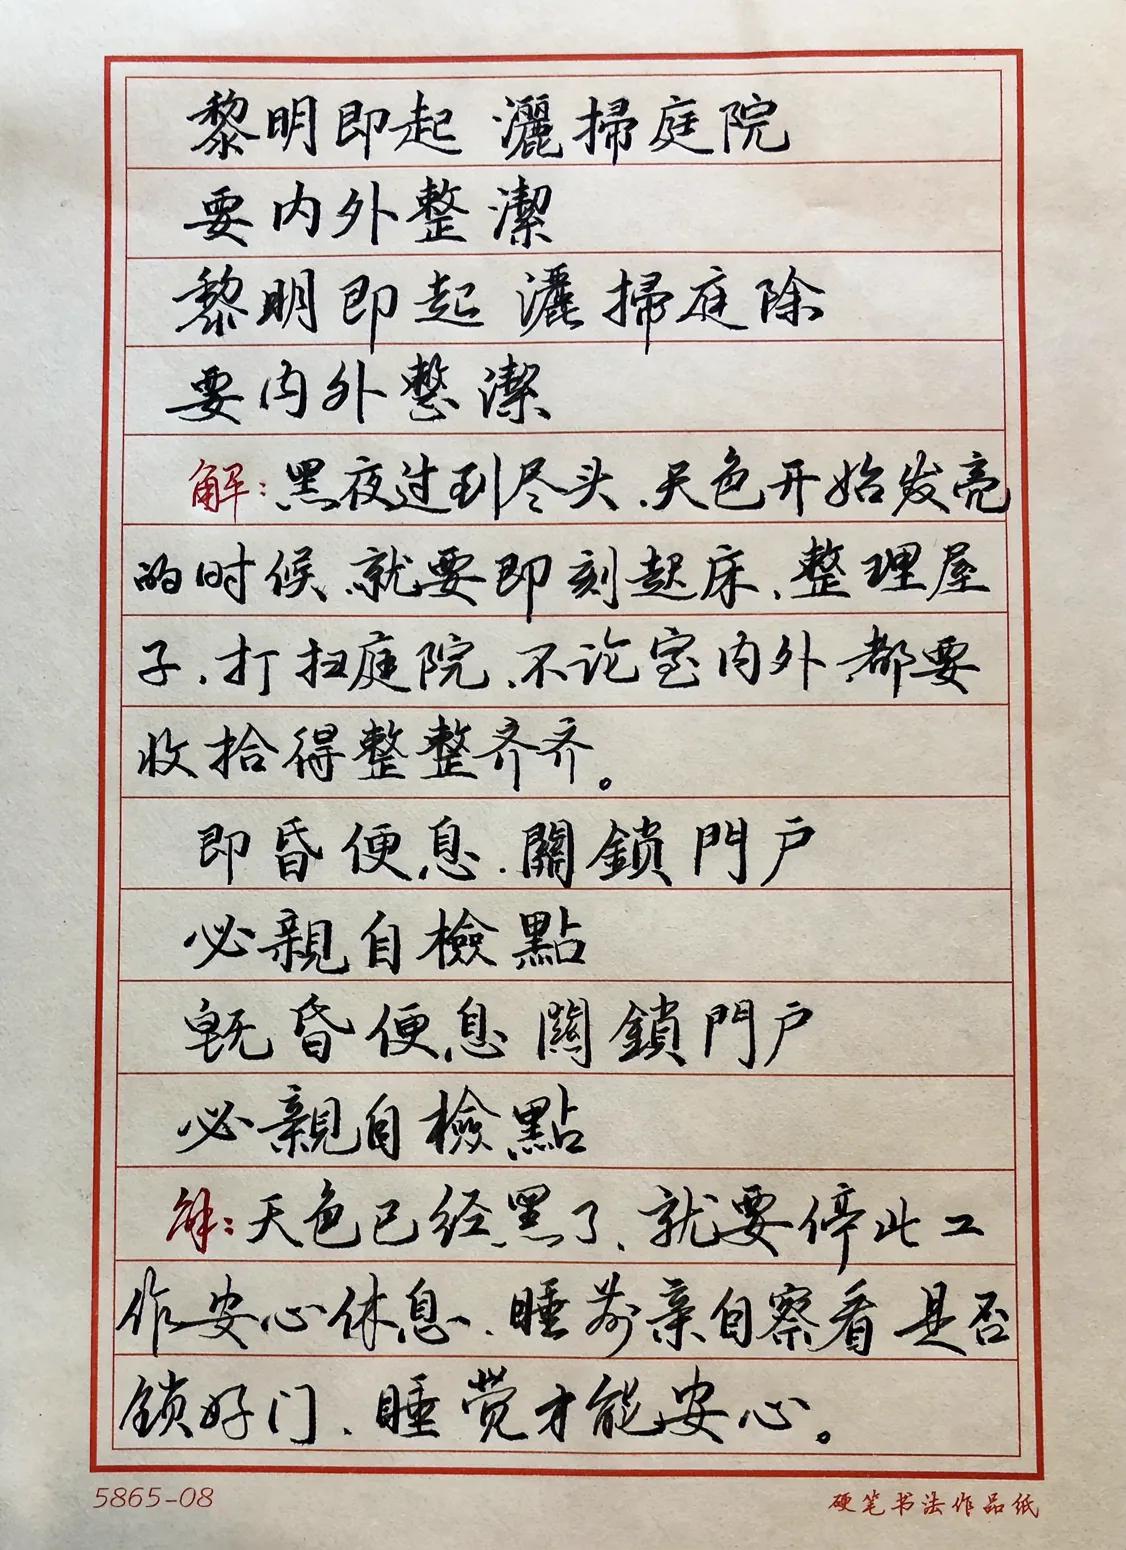 黎明即起 灑掃庭院
要内外整潔
黎明即起 灑掃庭除
要内外整潔
解：黑夜过到尽头、天色开始发亮
的时候、就要即刻起床、整理屋
子、打扫庭院、不论室内外都要
收拾得整整齐齐。
即昏便息、關鎖門户
必親自檢點
既昏便息 關鎖門户
必親自檢點
解：天色已经黑了、就要停止工
作安心休息、睡前亲自察看是否
锁好门、睡觉才能安心。
5865-08
硬笔书法作品纸